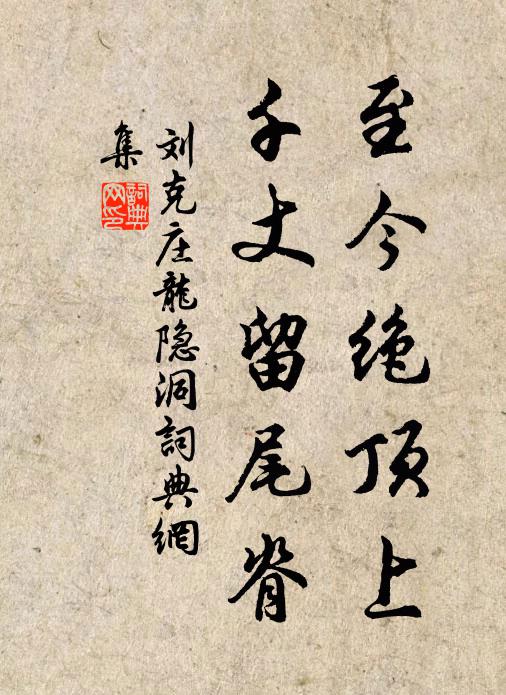 至今绝顶上
千丈留尾脊
刘克庄龍隐洞詞典網
集
詞典
网印